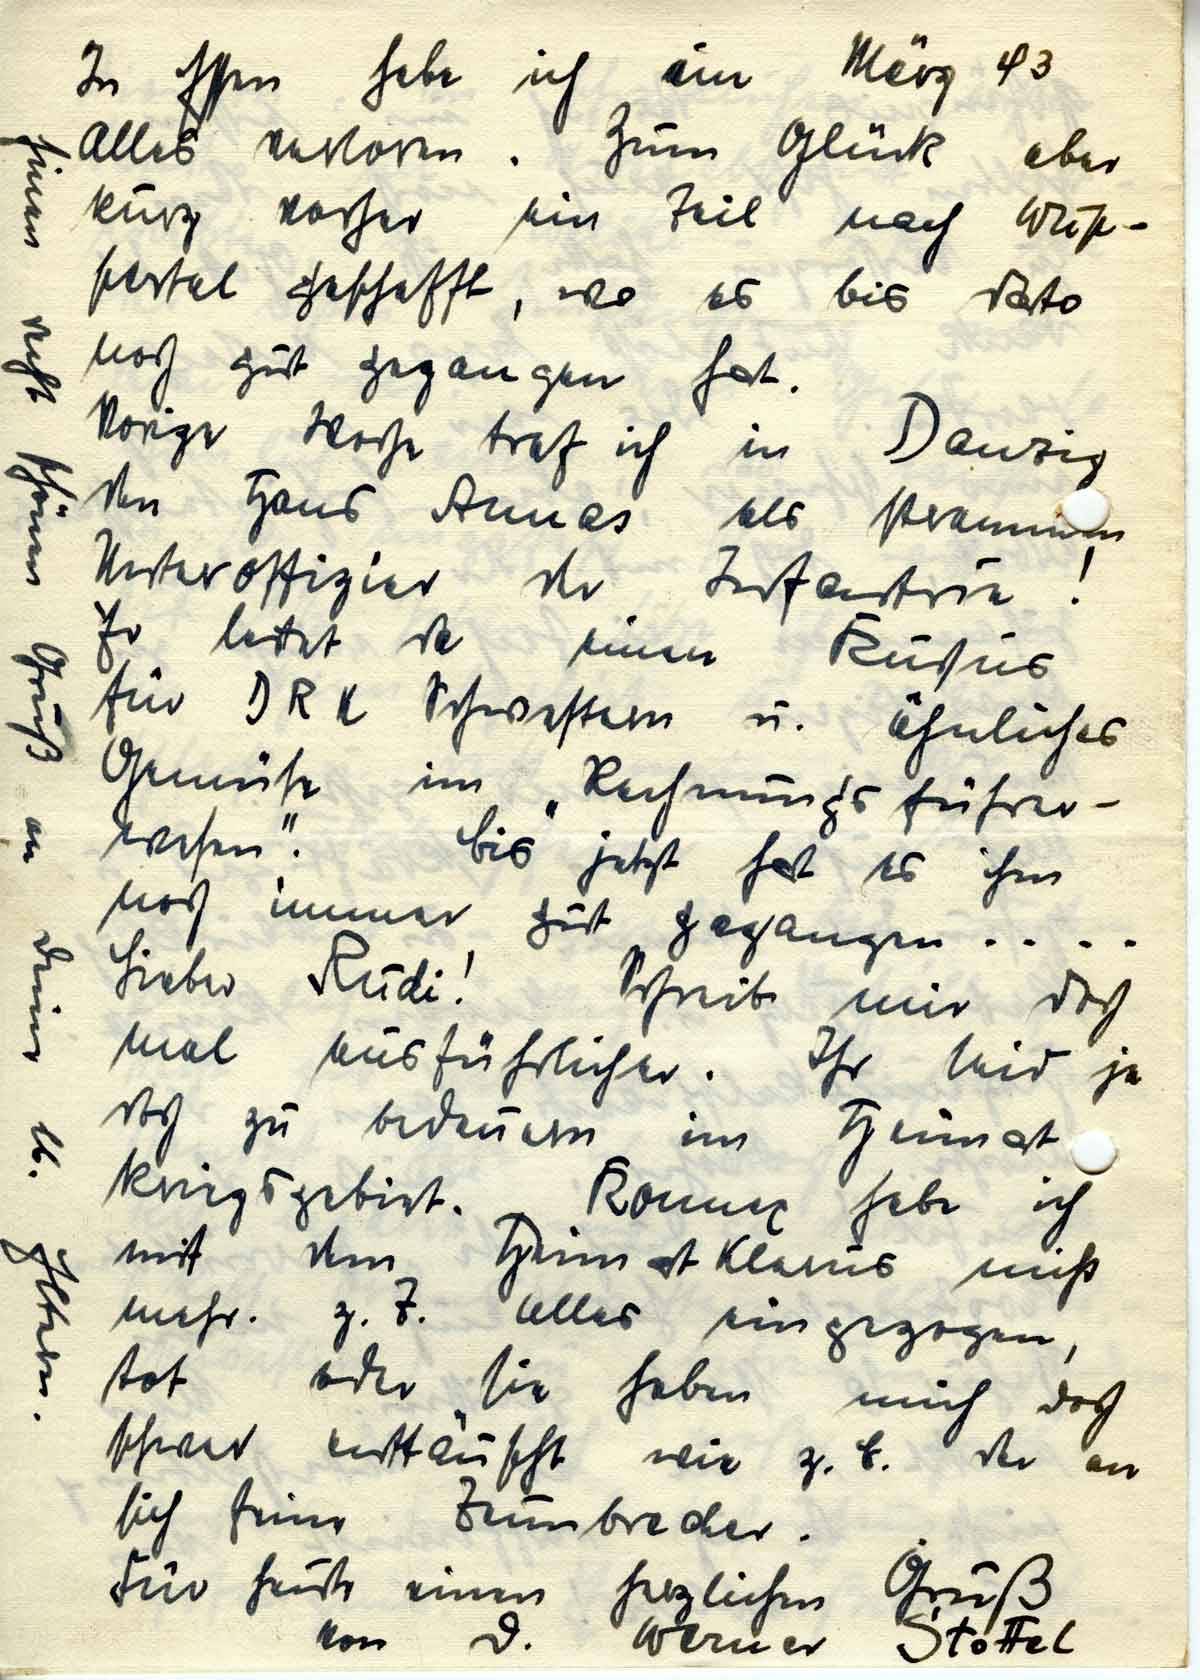 In Essen habe ich im März 43
Alles verloren. Zum Glück aber
kurz vorher ein Teil nach Wup-
pertal geschafft, wo es bis dato
noch gut gegangen hat.
Vorige Woche traf ich in Danzig
den Hans Annas als strammen
Unteroffizier der Infantrie!
Er leitet da einen Kursus
für DRK Schwestern u. ähnliches
Gemüse im „Rechnungsführer-
wesen". Bis jetzt hat es ihm
noch immer gut gegangen....
Lieber Rudi! Schreib mir doch
mal ausführlicher. Ihr seid ja
doch zu bedauern im Heimat
kriegsgebiet. Konnex habe ich
mit dem Heimatklerus nicht
mehr. z. Z. alles eingezogen,
tot oder sie haben mich doch
schwer enttäuscht wie z. B. der an
sich feine Zumbrecher.
Für heute einen herzlichen Gruß
von D. Werner Stoffel
Einen recht schönen Gruß an Deine lb. Eltern.